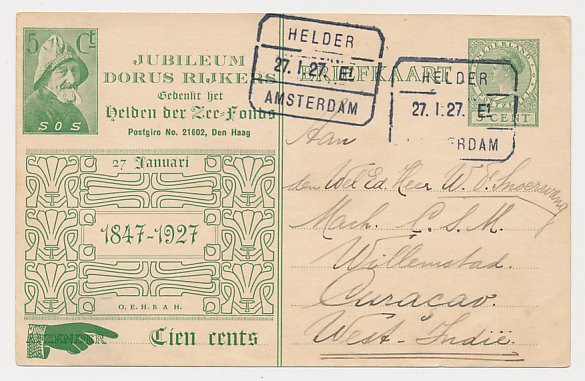 5 Ct
SOS
JUBILEUM
DORUS RIJKERS
Gedenkt het
Helden der Zee-Fonds
Postgiro No. 21602, Den Haag
27 Januari
1847-1927
O.E.H.B.A.H.
AFZENDER
Tien cents
HELDER
27.1.27. E!
AMSTERDAM
BRIEFKAART
HELDER
27.1.27. E!
RDAM
NEDERLAND
5 CENT
Aan
den Wel Ed. Heer W. v.
Mach. C.S.M.
Willemstad.
Curaçao.
West-Indië